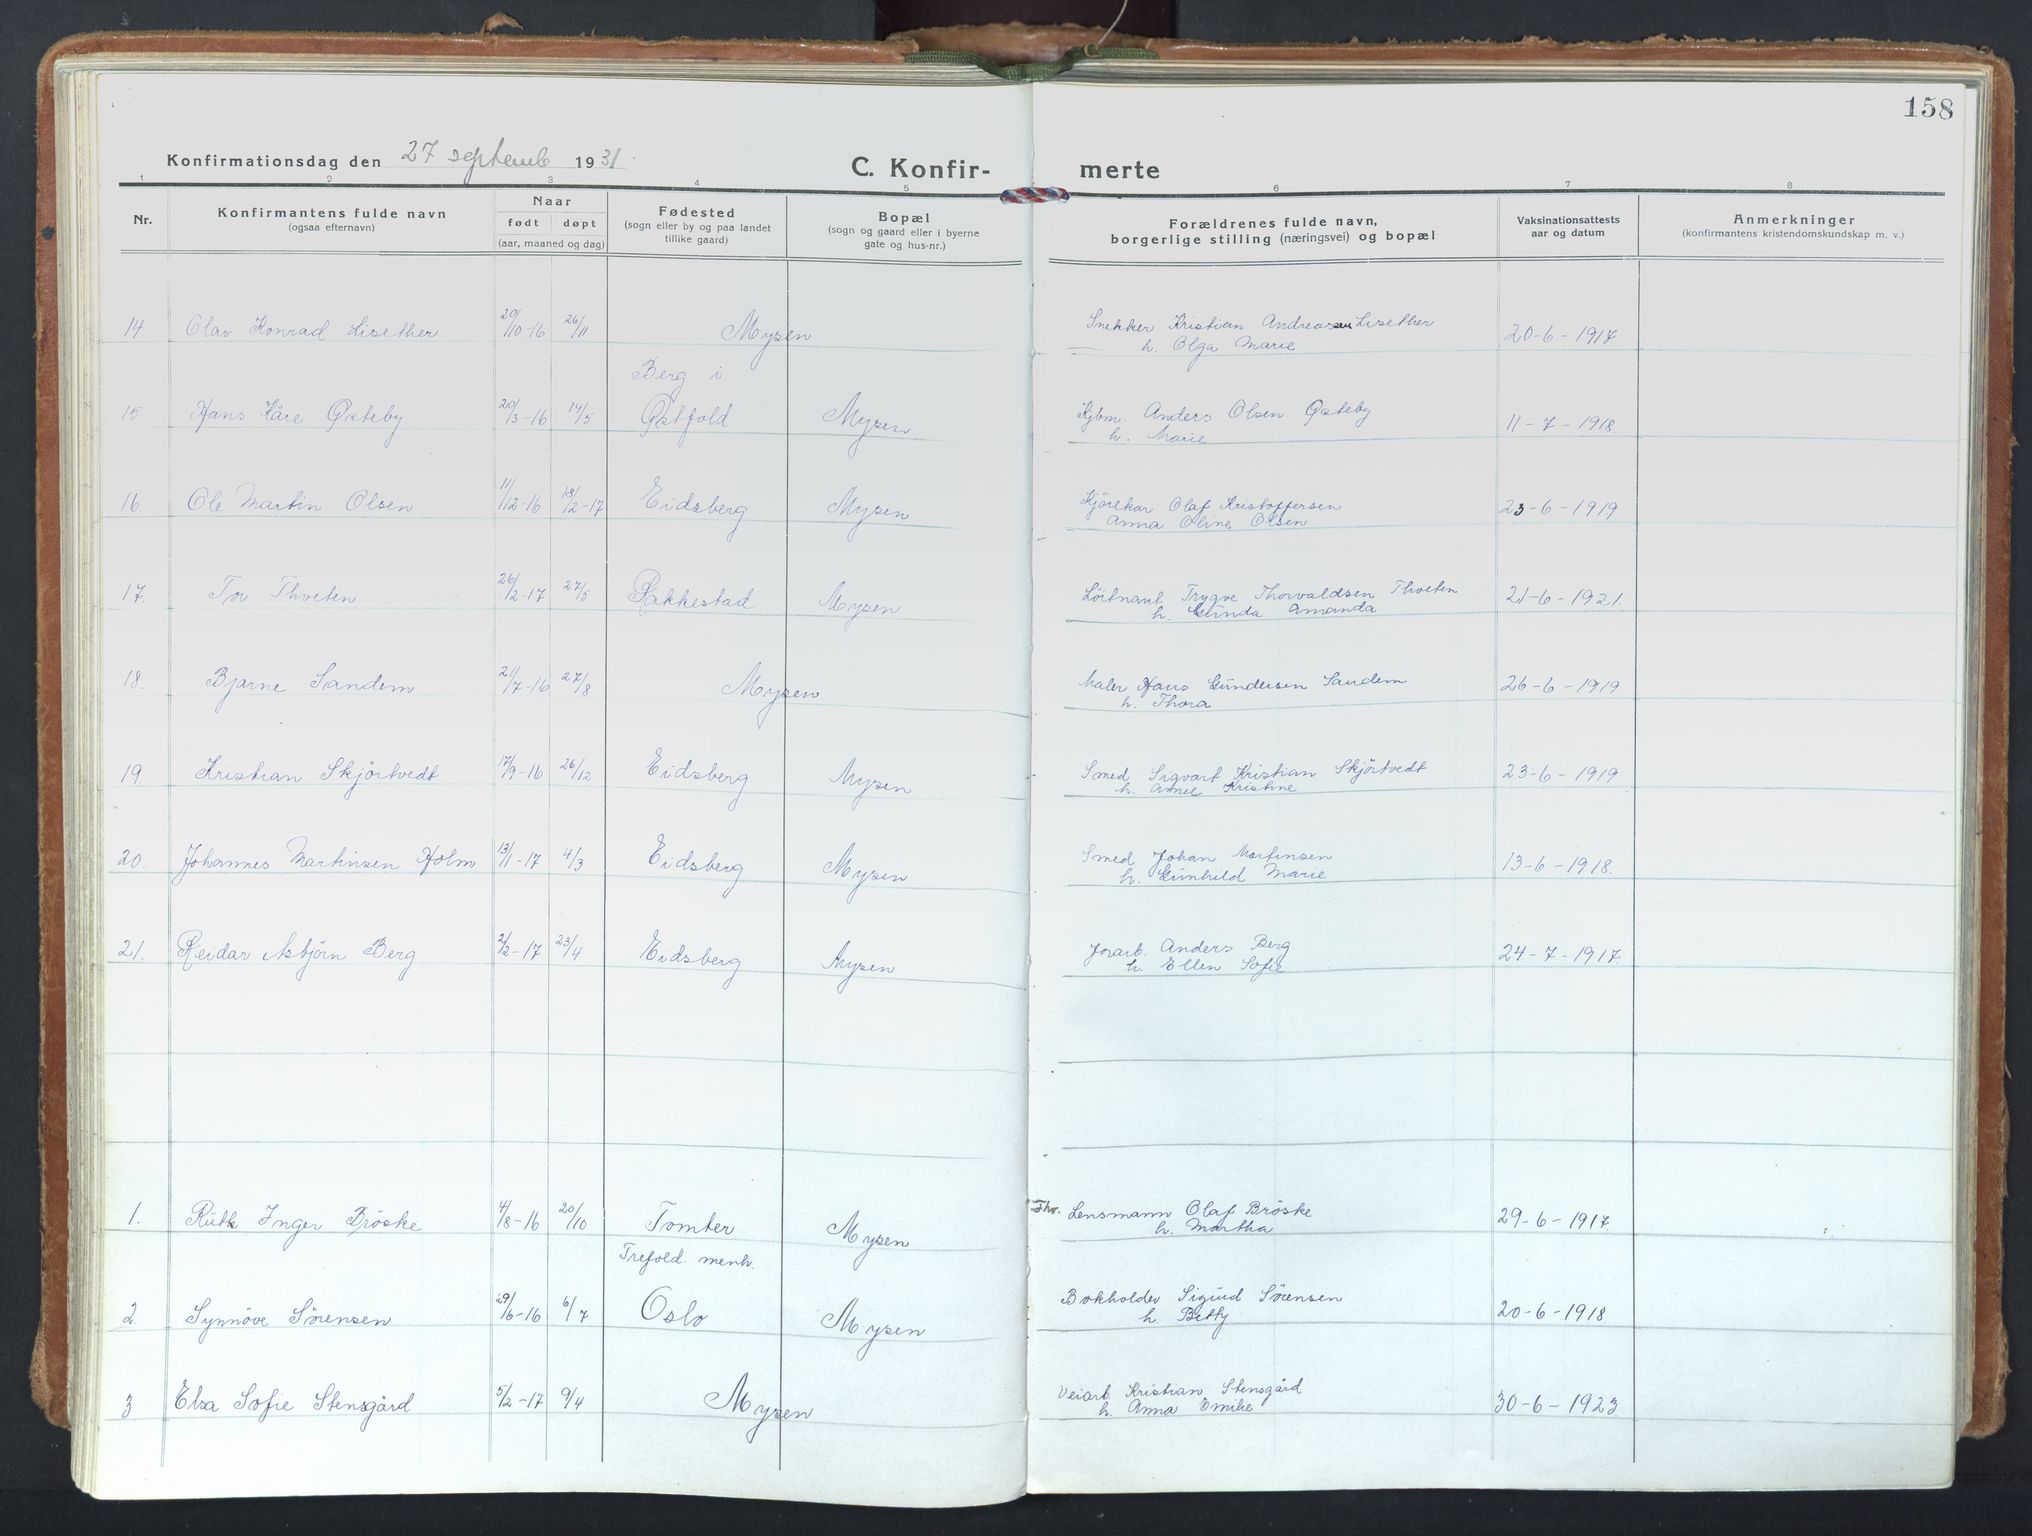 158
Konfirmationsdag den 27 septemb 1931.
C. Konfir- merte
1 2 3 4 5 6 7 8
Nr. Konfirmantens fulde navn (ogsaa efternavn) Naar født døpt (aar, maaned og dag) Fødested (sogn eller by og paa landet tillike gaard) Bopæl (sogn og gaard eller i byerne gate og hus-nr.) Forældrenes fulde navn, borgerlige stilling (næringsvei) og bopæl Vaksinationsattests aar og datum Anmerkninger (konfirmantens kristendomskundskap m. v.)
14. Olav Konrad Lisether 20/10-16 26/11 Mysen Snekker Kristian Andreassen Lisether 20-6-1917
h. Olga Marie
Berg i
15 Hans Kåre Østeby 20/3-16 14/5 Østfold Mysen Kjbm. Anders Olsen Østeby 11-7-1918.
h. Marie
16 Ole Martin Olsen 11/12-16 18/2-17 Eidsberg Mysen Kjörekar Olaf Kristoffersen 23-6-1919
Anna Oline Olsen
17. Tor Thveten 26/2-17 27/5 Rakkestad Mysen Löitnant Trygve Thorvaldsen Thveten 21-6-1921.
h. Gunda Amanda
18. Bjarne Sandem 21/7-16 27/8 Mysen Maler Hans Gundersen Sandem 26-6-1919.
h. Thora
19 Kristian Skjörtvedt 17/9-16 26/12 Eidsberg Mysen Smed Sigvart Kristian Skjörtvedt 23-6-1919
h. Kristine
20. Johannes Martinsen Holm 13/1-17 4/3 Eidsberg Mysen Smed Johan Martinsen 13-6-1918.
h. Gunhild Marie
21. Reidar Asbjörn Berg 2/2-17 23/4 Eidsberg Mysen Jorarb. Anders Berg 24-7-1917.
h. Ellen Sofie
1. Ruth Inger Bröske 4/8-16 20/10 Tomter Mysen Lensmann Olaf Bröske 29-6-1917
h. Martha
Trefold. menh.
2. Synnöve Sørensen 29/6-16 6/7 Oslo Mysen Bokholder Sigurd Sørensen 20-6-1918
h. Betty
3 Elsa Sofie Stensgård 5/2-17 9/4 Mysen Veiarb. Kristian Stensgård 30-6-1923
h. Anna Emilie